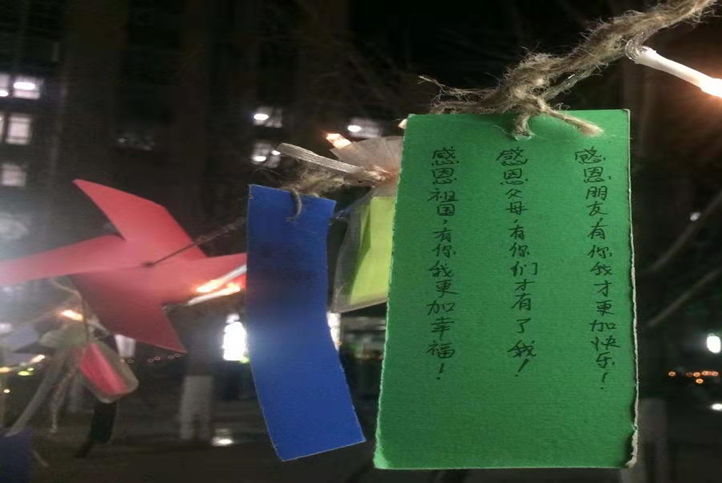 感恩朋友,有你我才更加快乐!
感恩父母,有你们才有了我!
感恩祖国,有你我更加幸福!